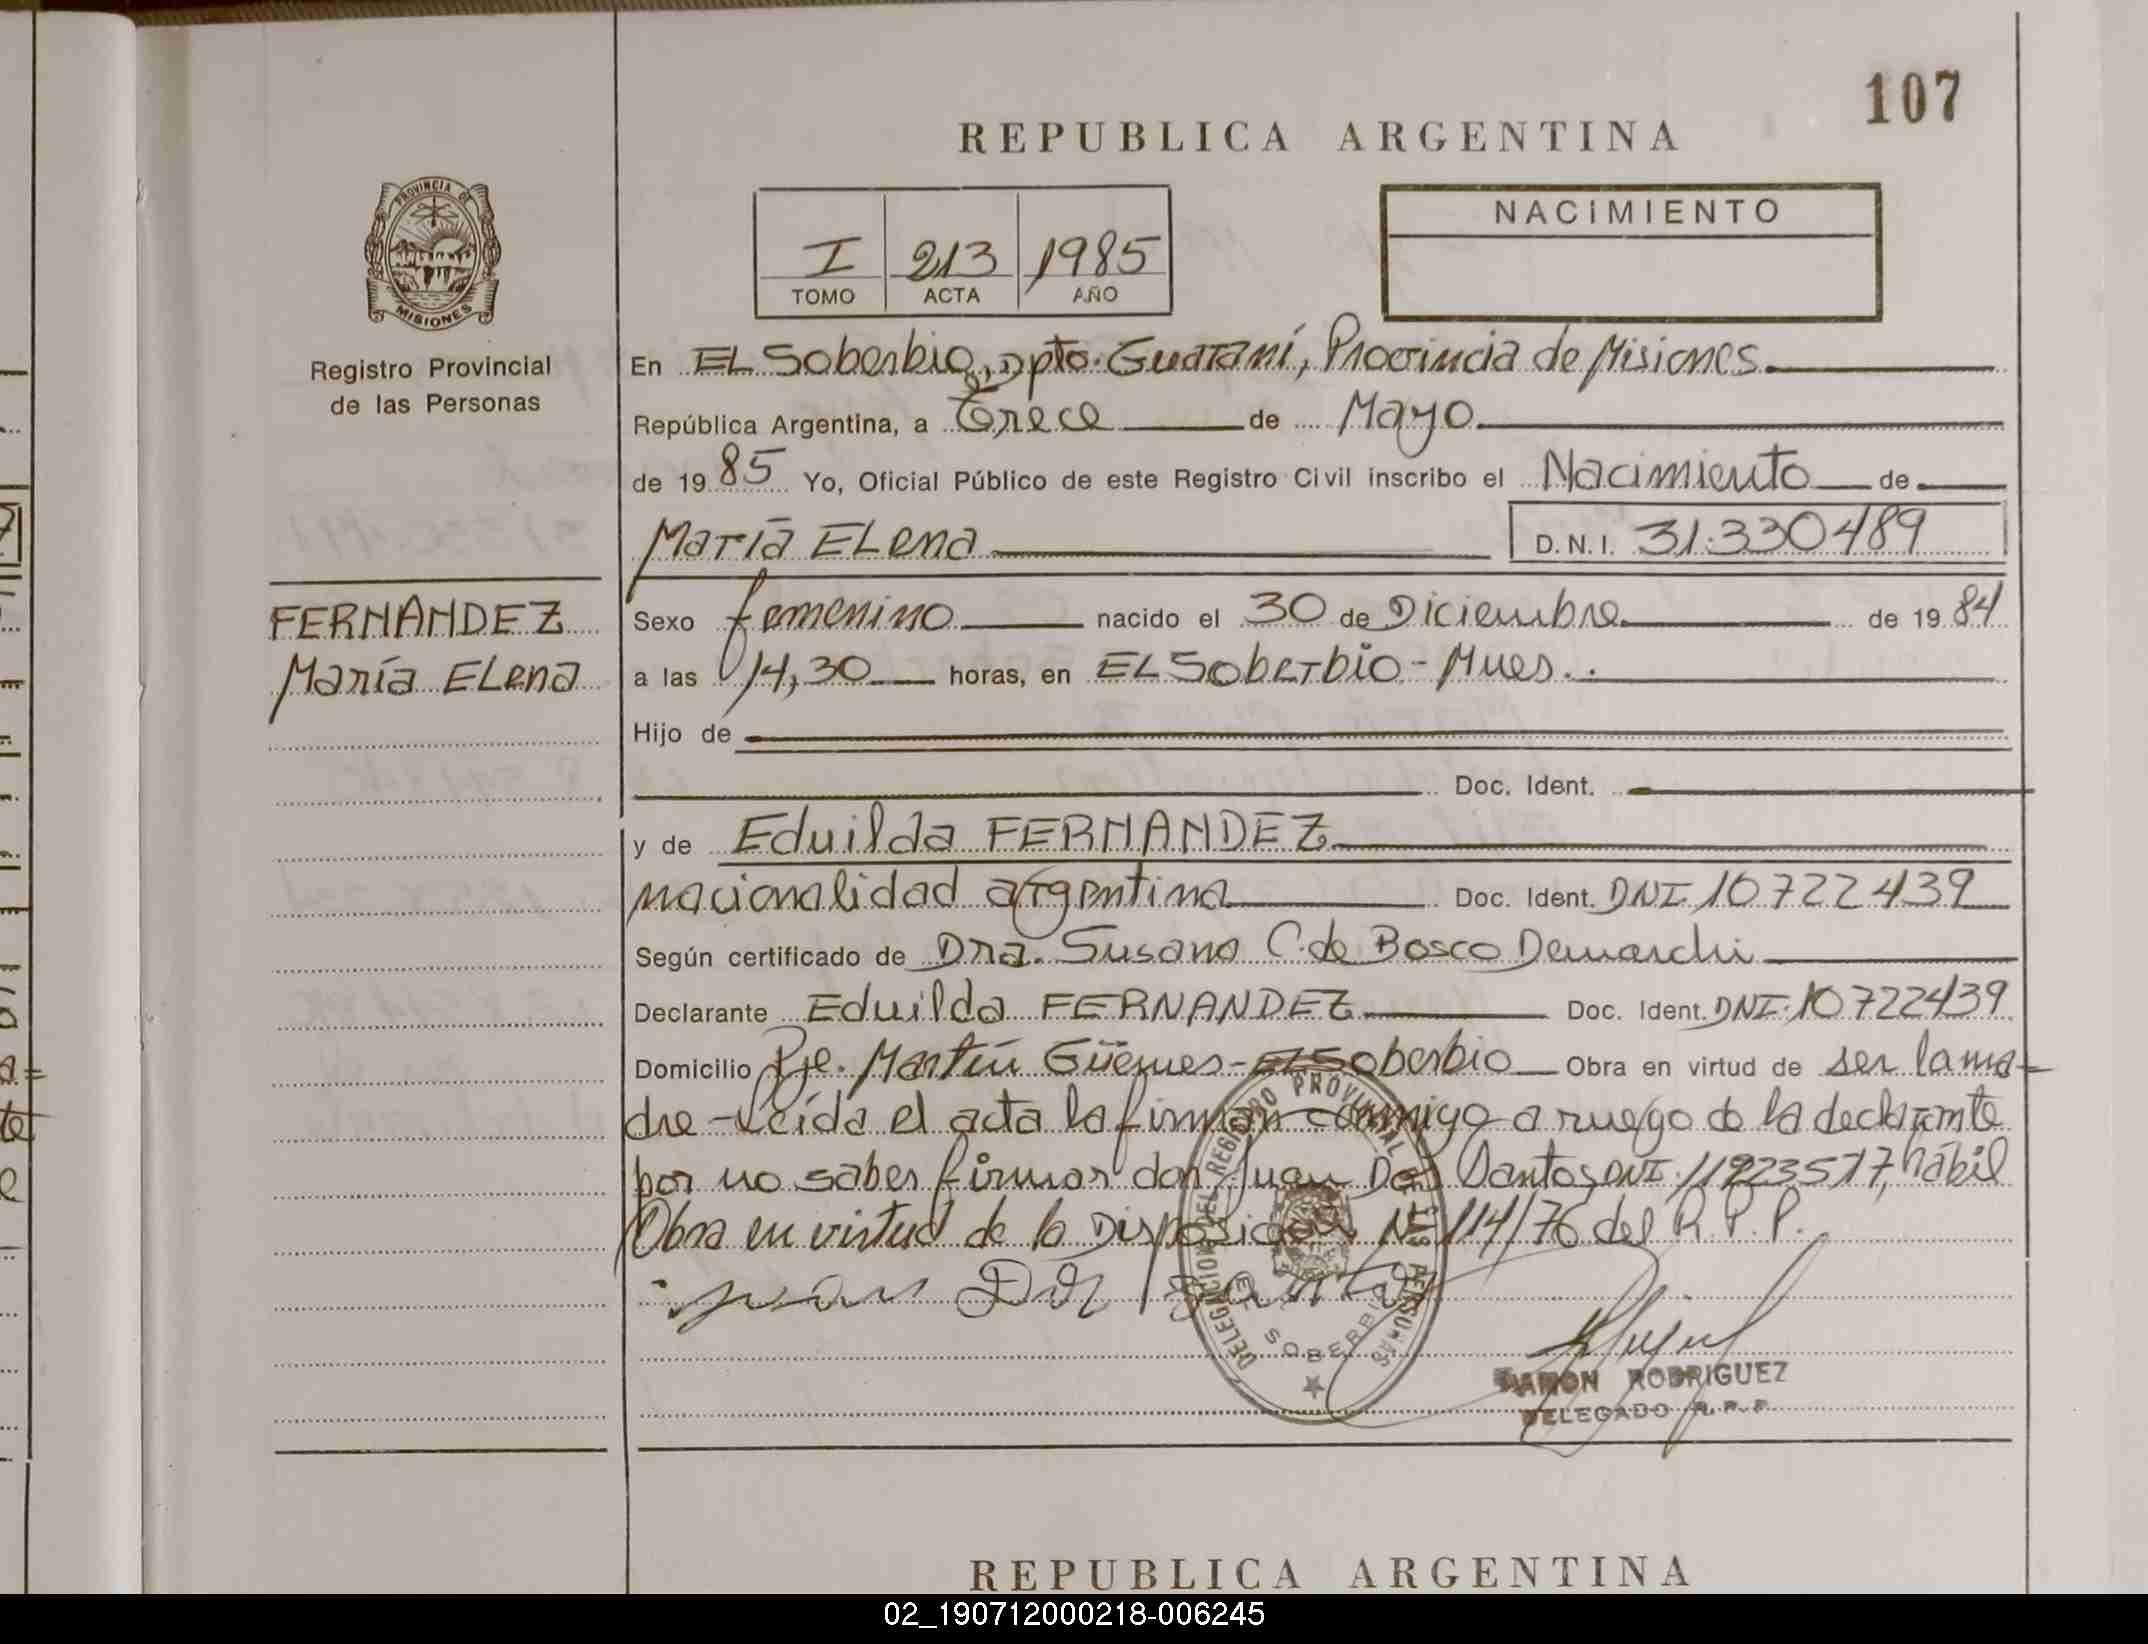 107
REPUBLICA ARGENTINA
PROVINCIA DE
MISIONES
Registro Provincial
de las Personas
I 213 1985
TOMO ACTA AÑO
NACIMIENTO
En EL Soberbio, Dpto. Guaraní, Provincia de Misiones.
República Argentina, a Trece de Mayo
de 1985 Yo, Oficial Público de este Registro Civil inscribo el Nacimiento de
María Elena D.N.I. 31.330489
FERNANDEZ
María Elena
Sexo femenino nacido el 30 de Diciembre de 1984
a las 14,30 horas, en EL Soberbio - Mnes.
Hijo de
Doc. Ident.
y de Eduilda FERNANDEZ
nacionalidad argentina Doc. Ident. DNI 10722439
Según certificado de Dra. Susana C. de Bosco Demarchi
Declarante Eduilda FERNANDEZ Doc. Ident. DNI. 10722439
Domicilio Pje. Martín Güemes - EL Soberbio Obra en virtud de ser la ma-
dre - Leída el acta la firman conmigo a ruego de la declarante
por no saber firmar don Juan Dos Santos DNI. 11923517, hábil
Obra en virtud de la Disposición Nº 114/76 del R.P.P.
Juan Dos Santos
DELEGACION DEL REGISTRO PROVINCIAL DE LAS PERSONAS
EL SOBERBIO
RAMON RODRIGUEZ
DELEGADO R.P.P.
REPUBLICA ARGENTINA
02_190712000218-006245